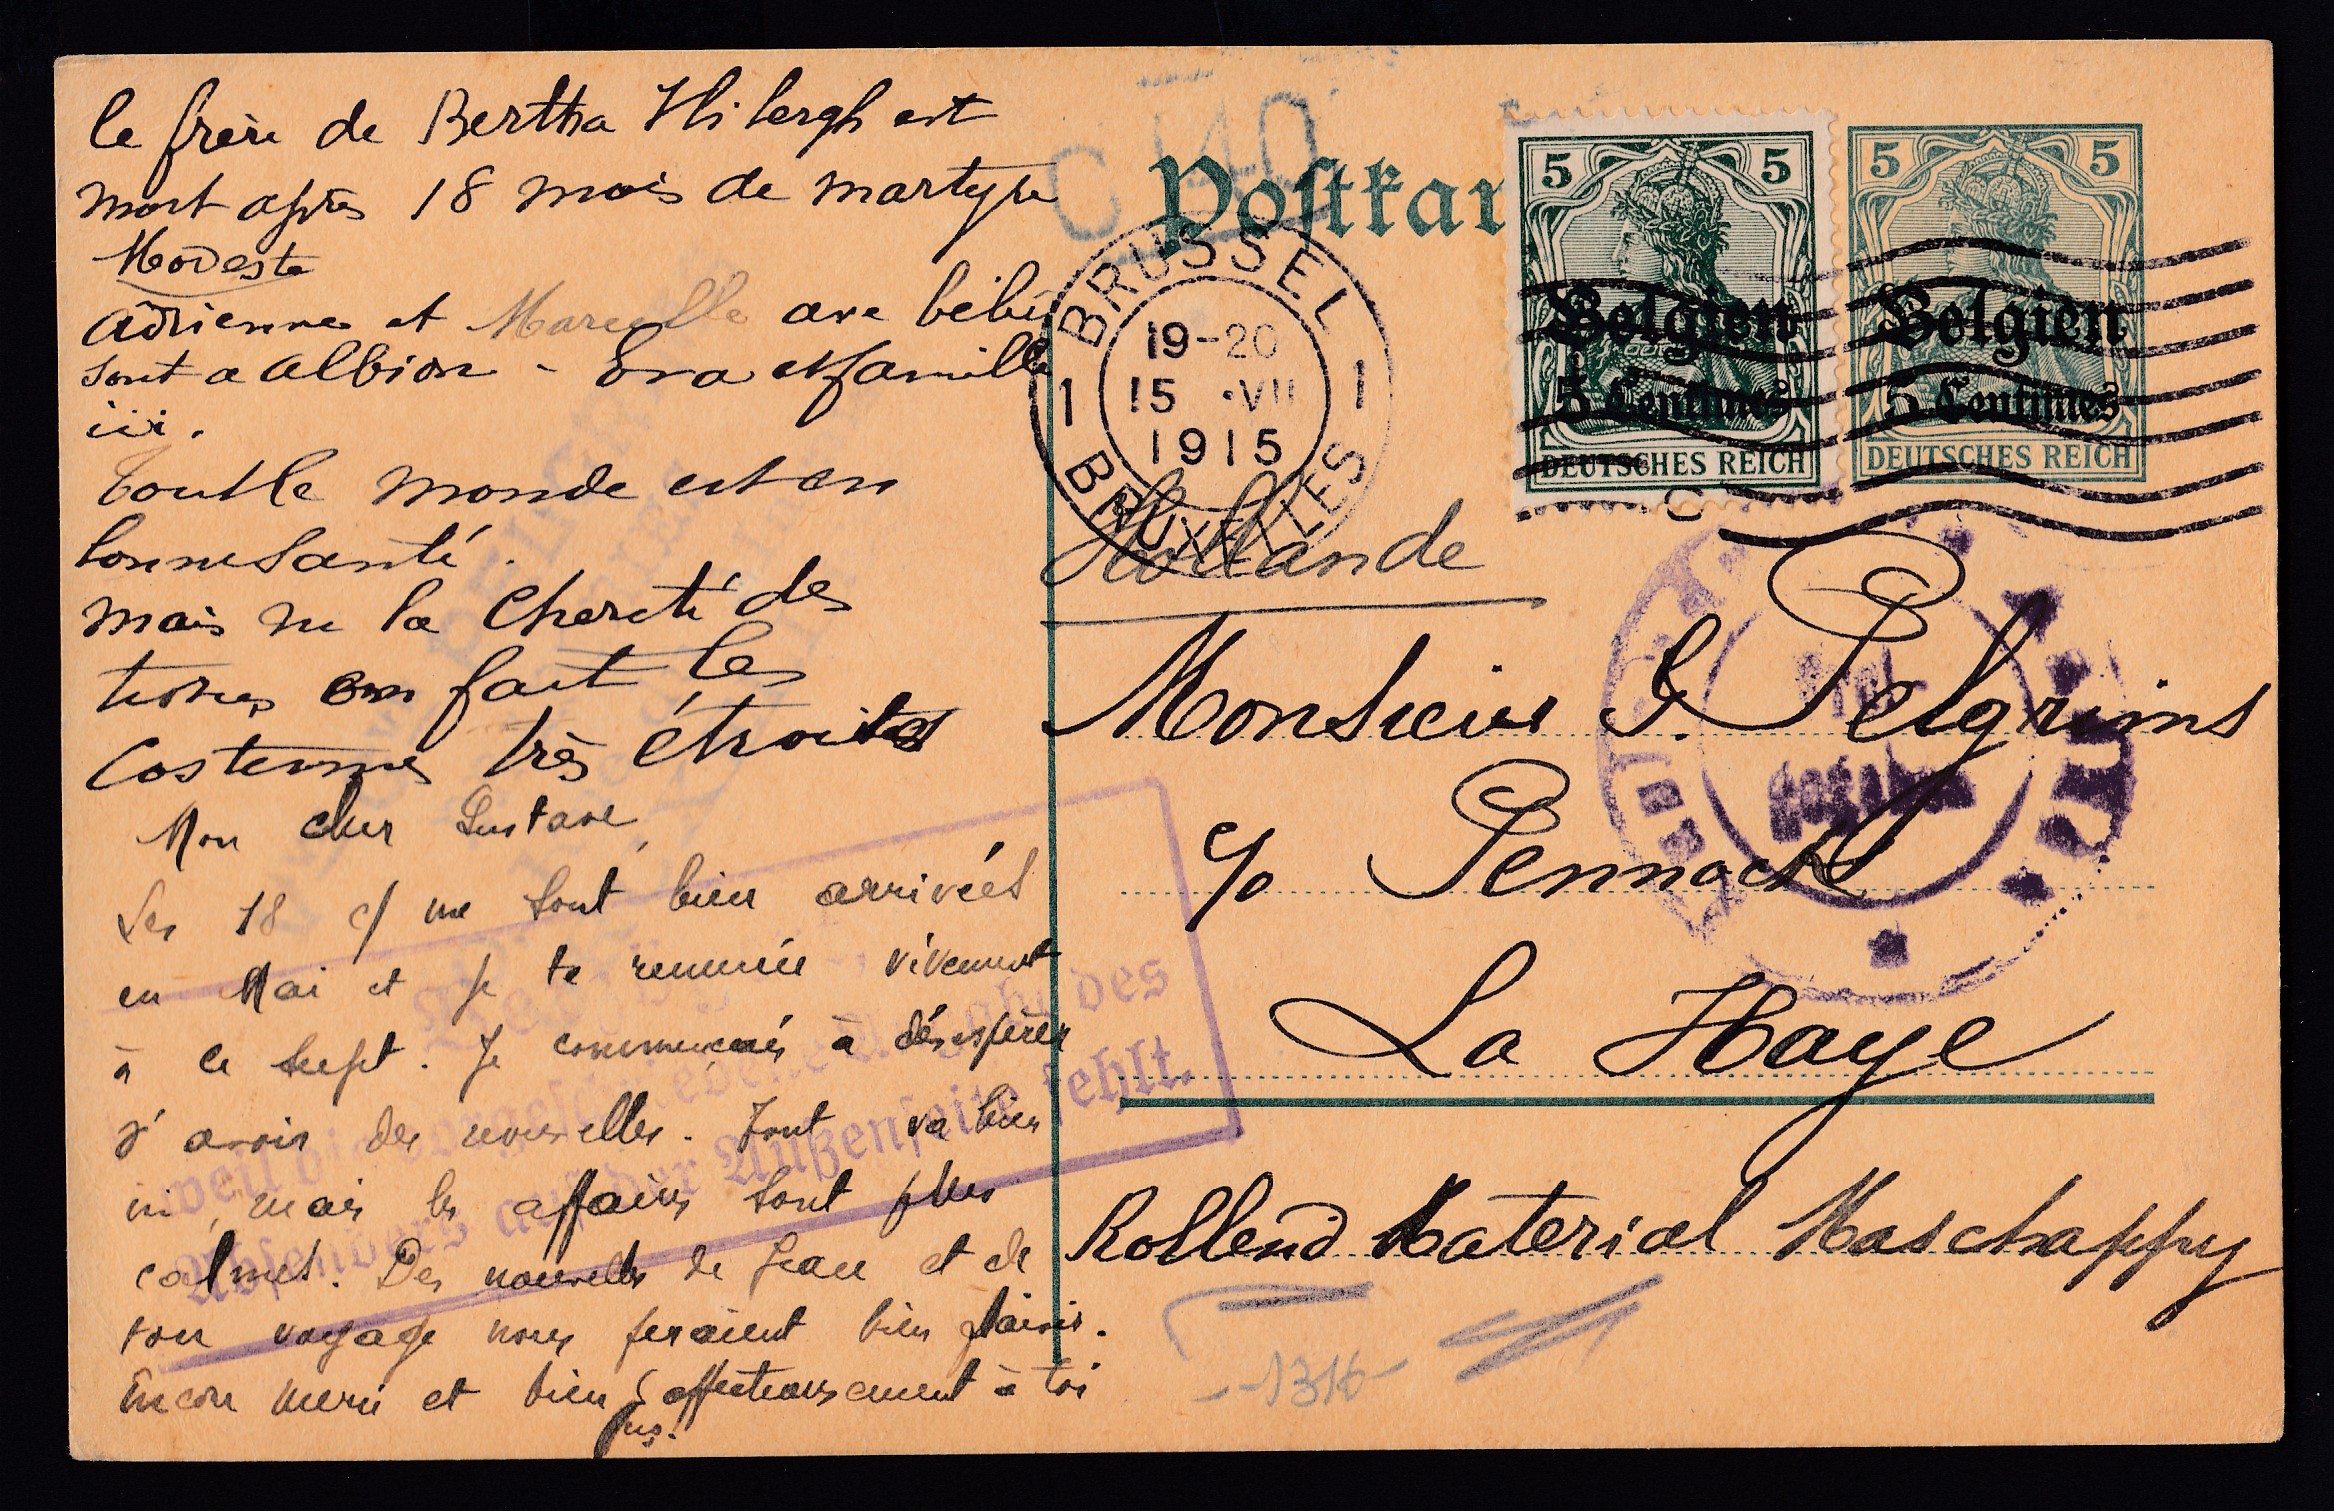 le frère de Bertha Hilergh est
mort après 18 mois de martyre
Modeste
Adrienne et Marcelle ave bébé
sont a Albion - Eva et famille
ici.
Tout le monde est en
bonne santé.
mais vu la cherté des
tissus on fait les
costumes très étroites
Mon cher Gustave,
Les 18 c/ me sont bien arrivées
en Mai et je te remercie vivement
à ce sujet. Je commençais à désespérer
d'avoir des nouvelles. Tout va bien
ici, mais les affaires sont plus
calmes. Des nouvelles de Jean et de
son voyage nous feraient bien plaisir.
Encore merci et bien affectueusement à toi
Postkar
5 5
Belgien
5 Centimes
DEUTSCHES REICH
5 5
Belgien
5 Centimes
DEUTSCHES REICH
C 40
BRUSSEL
19-20
15 ·VII
1915
1 1
BRUXELLES
Hollande
Monsieur G. Pelgrims
c/o Pennock
La Haye
Rollend Material Maschappy
weil die vorgeschriebene Angabe des
Absenders auf der Außenseite fehlt.
-1316-